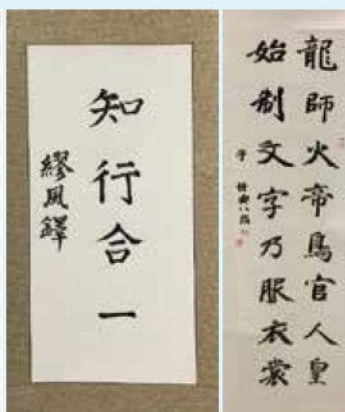 知行合一
繆鳳鐸
龍師火帝鳥官人皇
始制文字乃服衣裳